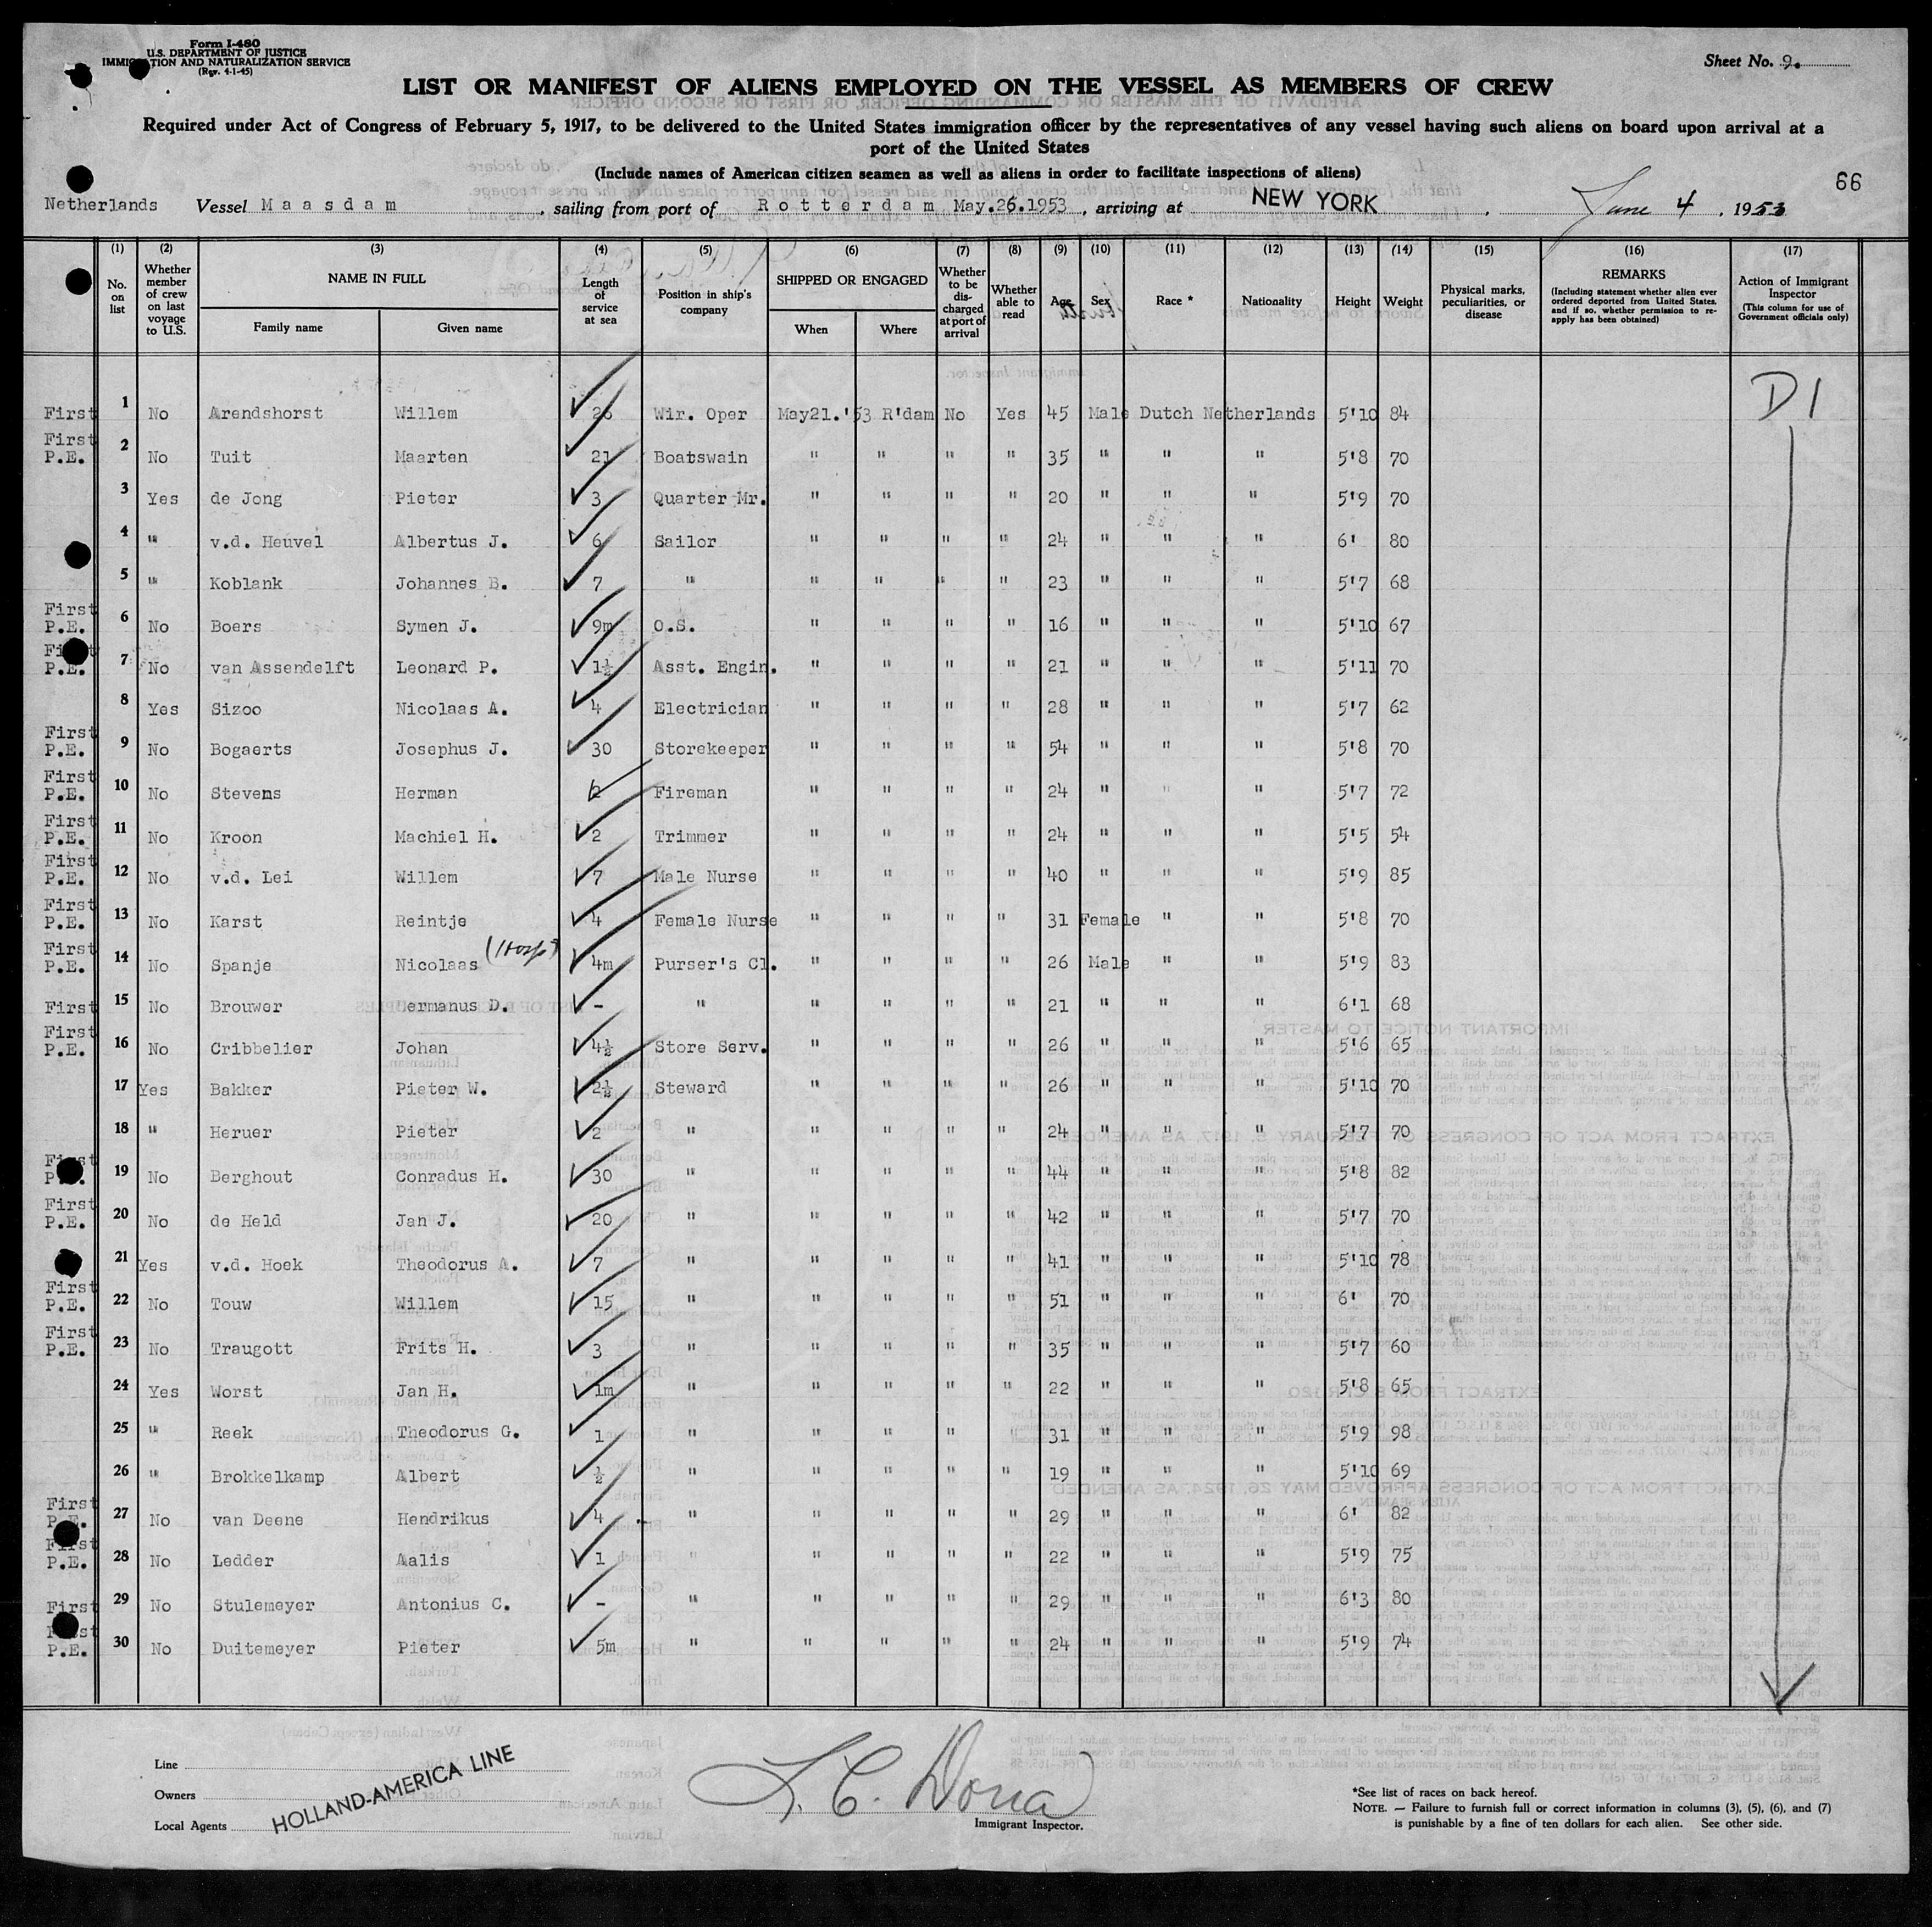 Form I-480
U.S. DEPARTMENT OF JUSTICE
IMMIGRATION AND NATURALIZATION SERVICE
(Rev. 4-1-45)
Sheet No. 9.
LIST OR MANIFEST OF ALIENS EMPLOYED ON THE VESSEL AS MEMBERS OF CREW
Required under Act of Congress of February 5, 1917, to be delivered to the United States immigration officer by the representatives of any vessel having such aliens on board upon arrival at a
port of the United States
(Include names of American citizen seamen as well as aliens in order to facilitate inspections of aliens)
66
Netherlands Vessel Maasdam, sailing from port of Rotterdam May.26.1953, arriving at NEW YORK, June 4, 1953
(1) (2) (3) (4) (5) (6) (7) (8) (9) (10) (11) (12) (13) (14) (15) (16) (17)
No. on list Whether member of crew on last voyage to U.S. NAME IN FULL Family name Given name Length of service at sea Position in ship's company SHIPPED OR ENGAGED When Where Whether to be discharged at port of arrival Whether able to read Age Sex Race * Nationality Height Weight Physical marks, peculiarities, or disease REMARKS (Including statement whether alien ever ordered deported from United States, and if so, whether permission to re-apply has been obtained) Action of Immigrant Inspector (This column for use of Government officials only)
D1
First 1 No Arendshorst Willem 26 Wir. Oper May21.'53 R'dam No Yes 45 Male Dutch Netherlands 5'10 84
First P.E. 2 No Tuit Maarten 21 Boatswain " " " " 35 " " " 5'8 70
3 Yes de Jong Pieter 3 Quarter Mr. " " " " 20 " " " 5'9 70
4 " v.d. Heuvel Albertus J. 6 Sailor " " " " 24 " " " 6' 80
5 " Koblank Johannes B. 7 " " " " " 23 " " " 5'7 68
First P.E. 6 No Boers Symen J. 9m O.S. " " " " 16 " " " 5'10 67
First P.E. 7 No van Assendelft Leonard P. 1½ Asst. Engin. " " " " 21 " " " 5'11 70
8 Yes Sizoo Nicolaas A. 4 Electrician " " " " 28 " " " 5'7 62
First P.E. 9 No Bogaerts Josephus J. 30 Storekeeper " " " " 54 " " " 5'8 70
First P.E. 10 No Stevens Herman Fireman " " " " 24 " " " 5'7 72
First P.E. 11 No Kroon Machiel H. 2 Trimmer " " " " 24 " " " 5'5 54
First P.E. 12 No v.d. Lei Willem 7 Male Nurse " " " " 40 " " " 5'9 85
First P.E. 13 No Karst Reintje 4 Female Nurse " " " " 31 Female " " 5'8 70
First P.E. 14 No Spanje Nicolaas (Hosp) 4m Purser's Cl. " " " " 26 Male " " 5'9 83
First 15 No Brouwer Hermanus D. - " " " " " 21 " " " 6'1 68
First P.E. 16 No Cribbelier Johan 4½ Store Serv. " " " " 26 " " " 5'6 65
17 Yes Bakker Pieter W. 2½ Steward " " " " 26 " " " 5'10 70
18 " Heruer Pieter 2 " " " " " 24 " " " 5'7 70
First P.E. 19 No Berghout Conradus H. 30 " " " " " 44 " " " 5'8 82
First P.E. 20 No de Held Jan J. 20 " " " " " 42 " " " 5'7 70
21 Yes v.d. Hoek Theodorus A. 7 " " " " " 41 " " " 5'10 78
First P.E. 22 No Touw Willem 15 " " " " " 51 " " " 6' 70
First P.E. 23 No Traugott Frits H. 3 " " " " " 35 " " " 5'7 60
24 Yes Worst Jan H. 1m " " " " " 22 " " " 5'8 65
25 " Reek Theodorus G. 1 " " " " " 31 " " " 5'9 98
26 " Brokkelkamp Albert ½ " " " " " 19 " " " 5'10 69
First P.E. 27 No van Deene Hendrikus 4 " " " " " 29 " " " 6' 82
First P.E. 28 No Ledder Aalis 1 " " " " " 22 " " " 5'9 75
First 29 No Stulemeyer Antonius C. - " " " " " 29 " " " 6'3 80
First P.E. 30 No Duitemeyer Pieter 5m " " " " " 24 " " " 5'9 74
Line
Owners
Local Agents
HOLLAND-AMERICA LINE
L. C. Dona
Immigrant Inspector.
*See list of races on back hereof.
NOTE. — Failure to furnish full or correct information in columns (3), (5), (6), and (7)
is punishable by a fine of ten dollars for each alien. See other side.